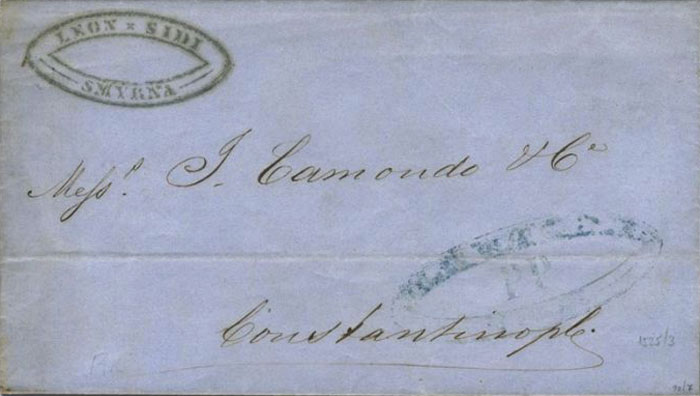 LEON * SIDI
SMYRNA
Messrs. I. Camondo & Ce
PP
Constantinople.
1525/3